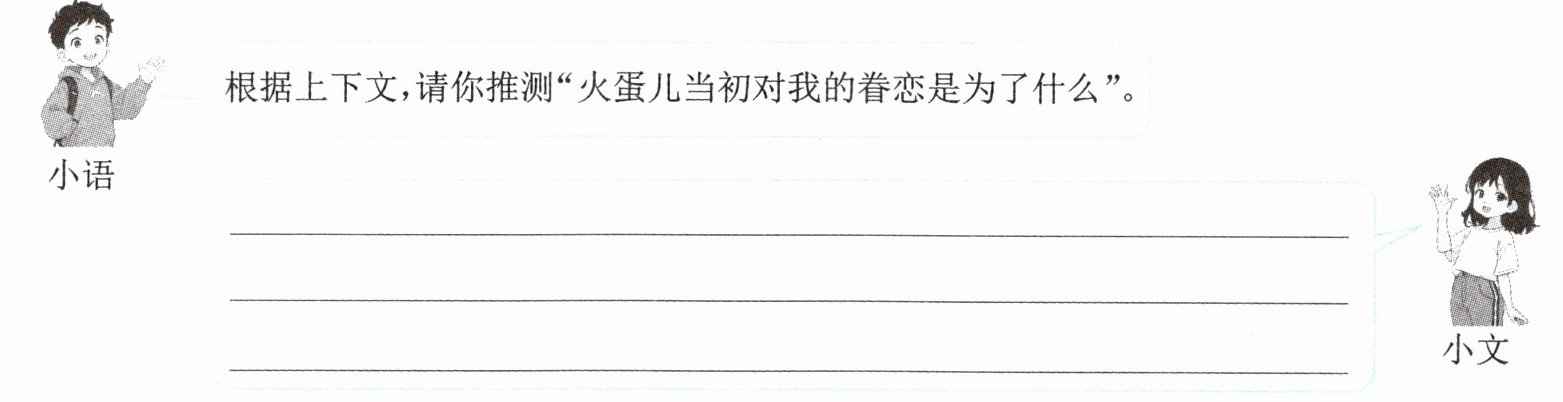 根据上下文,请你推测“火蛋儿当初对我的眷恋是为了什么”。
小语
小文